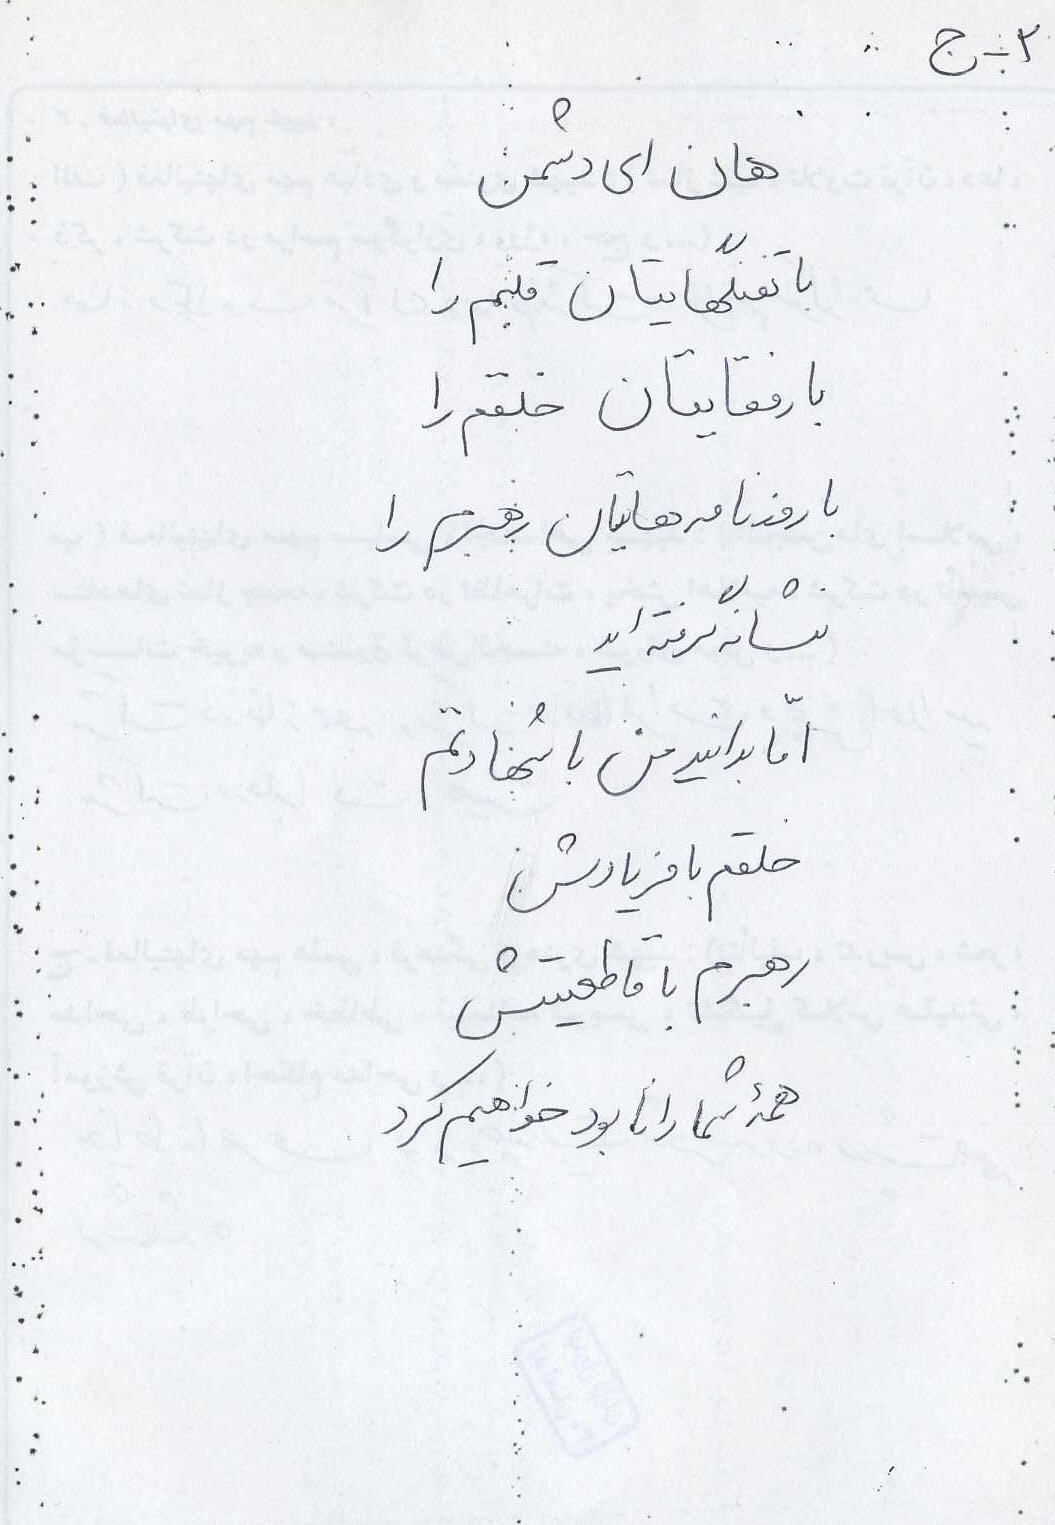 ۲- ج
هان ای دشمن
با تفنگهایتان قلبم را
با رفقایتان خلقم را
با روزنامه هایتان رهبرم را
نشانه گرفته اید
امّا بدانید من با شهادتم
خلقم با فریادش
رهبرم با قاطعیتش
همهٔ شما را نابود خواهیم کرد